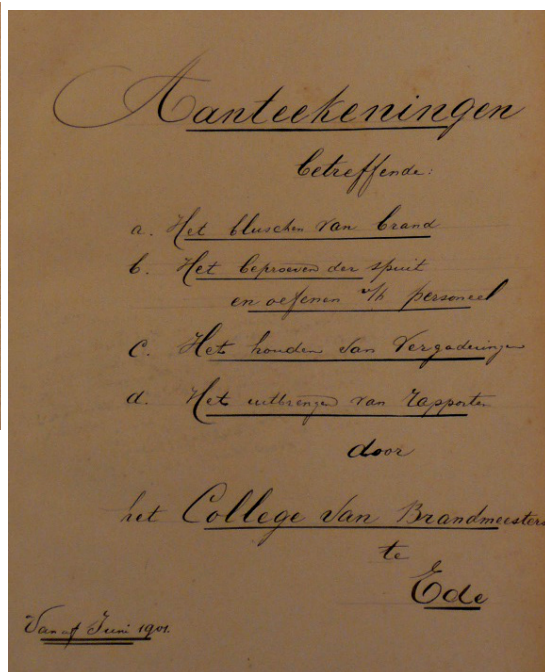 Aanteekeningen
betreffende:
a. Het blusschen van brand
b. Het beproeven der spuit
en oefenen v/h personeel
c. Het houden van Vergaderingen
d. Het uitbrengen van Rapporten
door
het College van Brandmeesters
te
Ede
Vanaf Juni 1901.